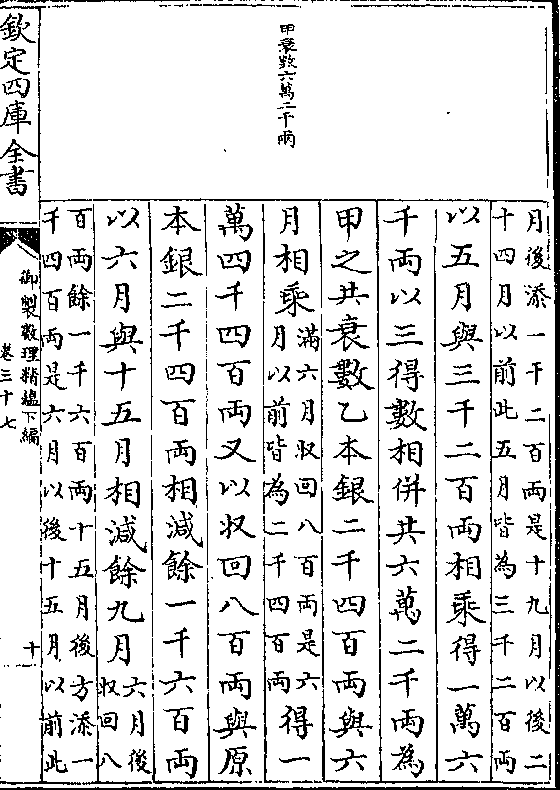 甲衰數六萬二千兩
月後添一千二百兩是十九月以後二
十四月以前此五月皆為三千二百兩
以五月與三千二百兩相乘得一萬六
千兩以三得數相併共六萬二千兩為
甲之共衰數乙本銀二千四百兩與六
月相乘滿六月収回八百兩是六
月以前皆為二千四百兩得一
萬四千四百兩又以収回八百兩與原
本銀二千四百兩相減餘一千六百兩
以六月與十五月相減餘九月六月後
収回八
百兩餘一千六百兩十五月後方添一
千四百兩是六月以後十五月以前此
欽定四庫全書
御製數理精蘊下編
卷三十七
十